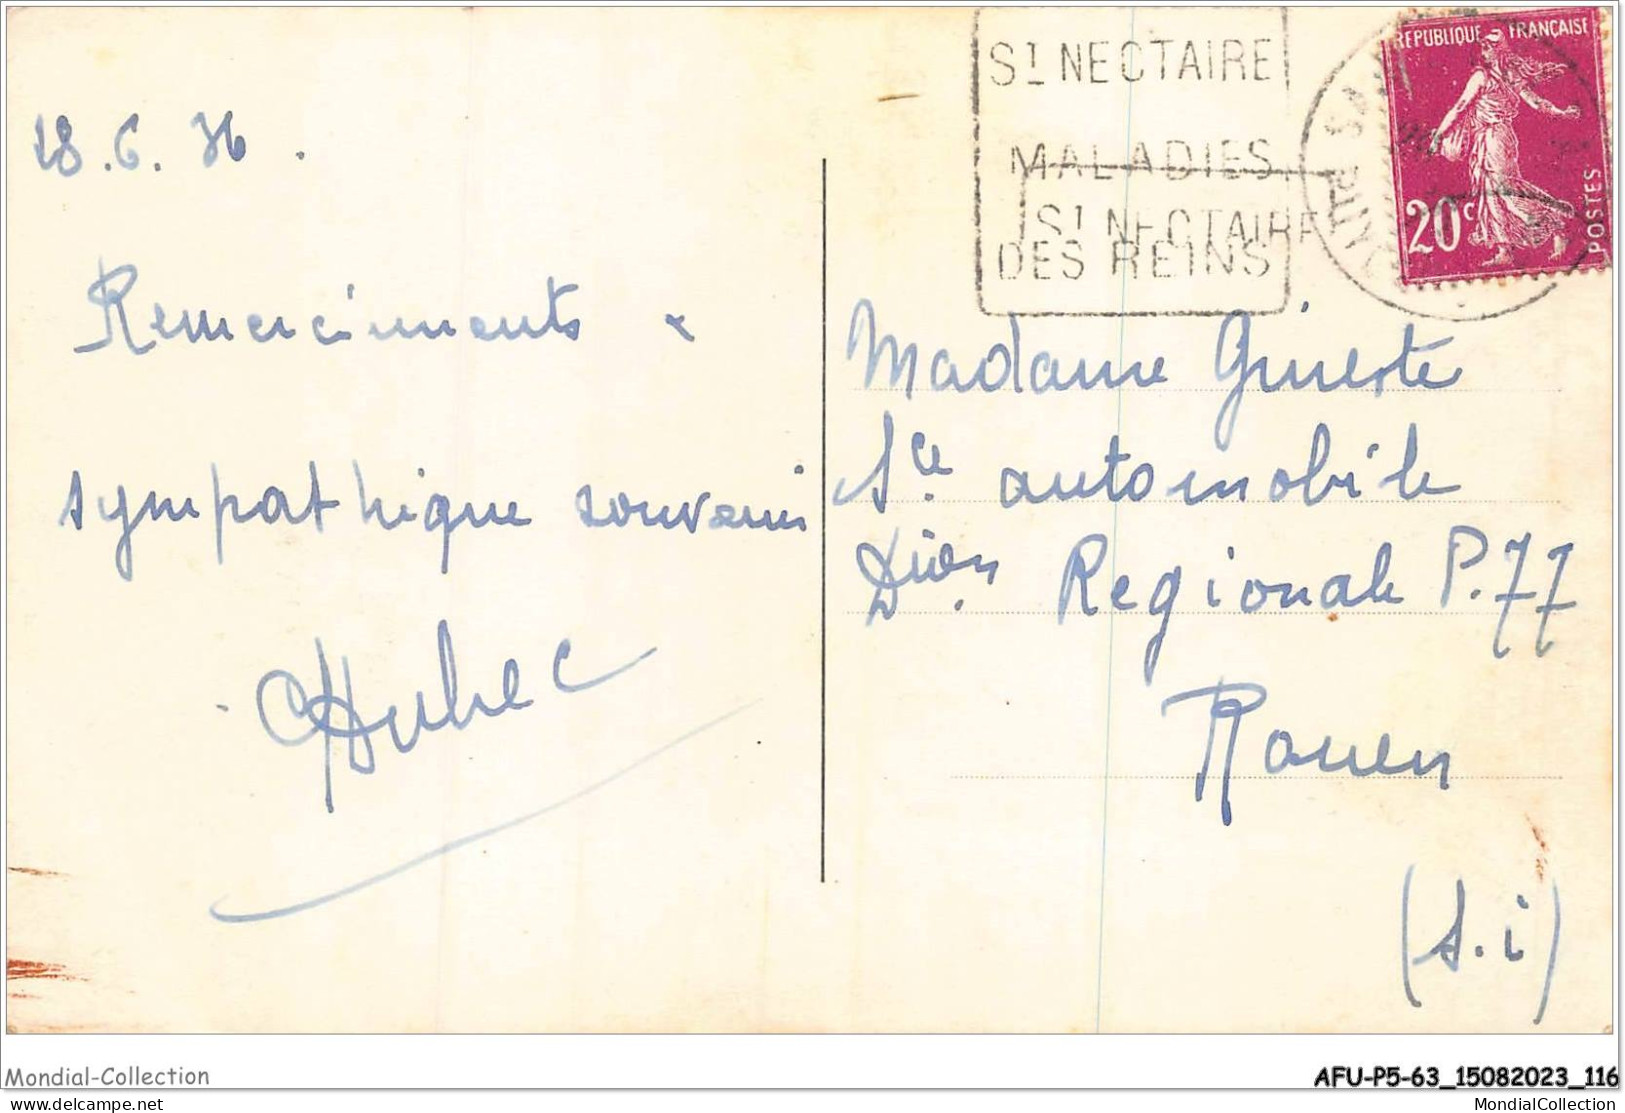 18.6.36.
Remerciments &
sympathique souvenir
Hubec
St NECTAIRE
MALADIES
St NECTAIRE
DES REINS
REPUBLIQUE FRANÇAISE
20c
POSTES
Madame Ginieste
Sce automobile
Dion Regionale P.77
Rouen
(S.i)
Mondial-Collection
AFU-P5-63_15082023_116
delcampe.net
MondialCollection